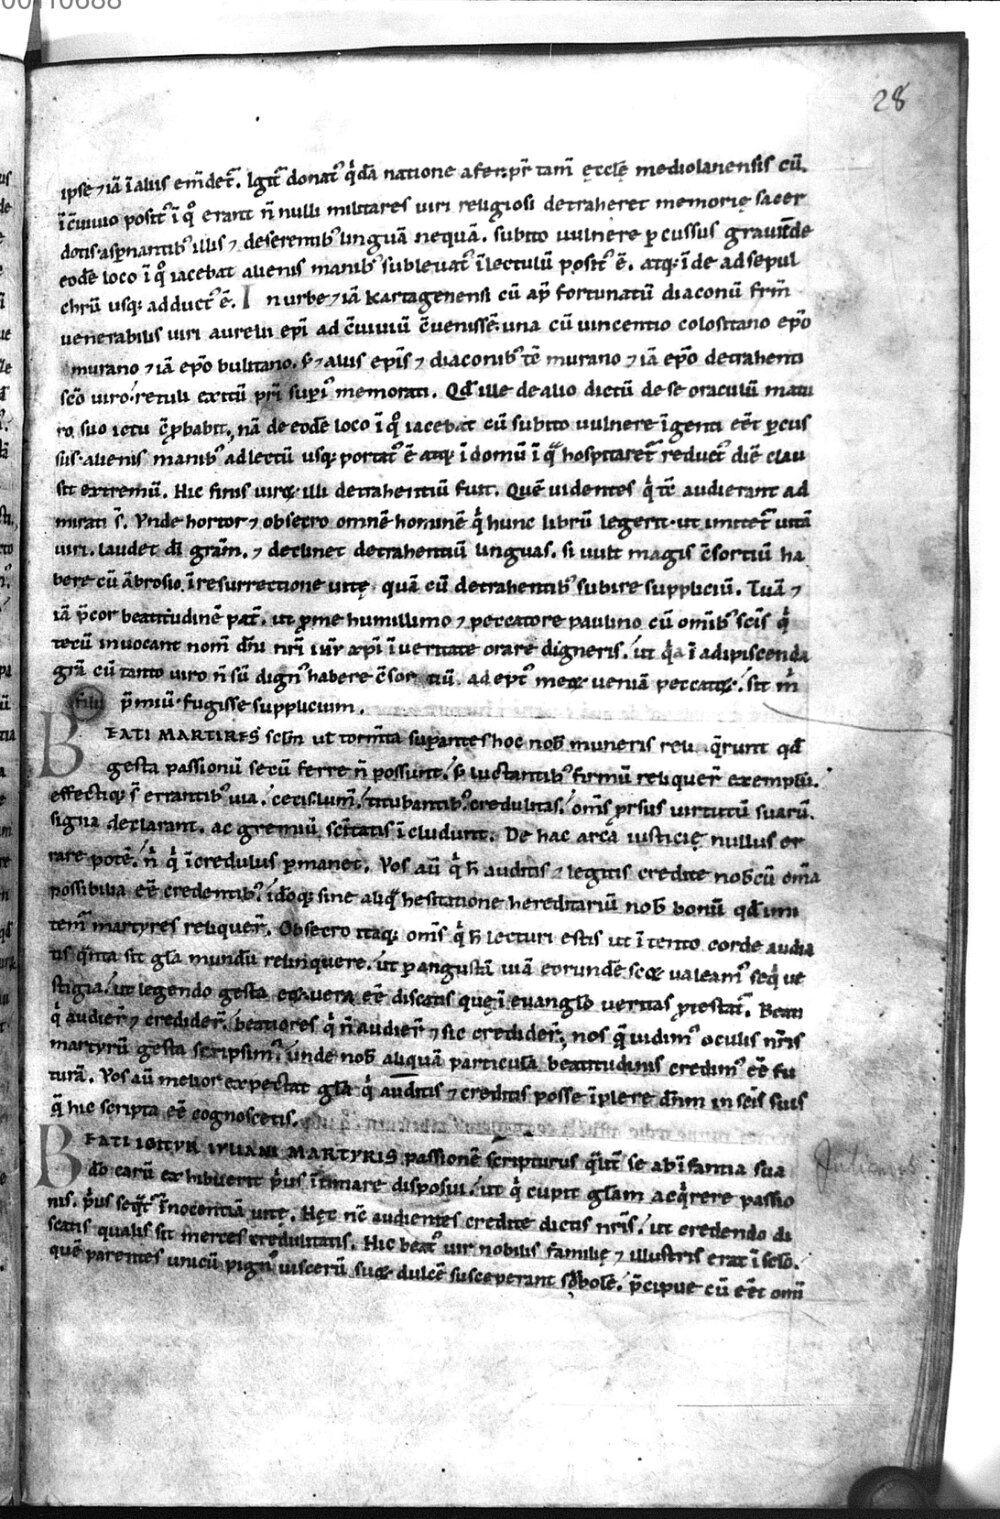 28
ipse ⁊ iā ī aliis em̄det᷑. Igit᷑ donat᷒ q̇dā natione afer, p̄r tam̄ ęcclę mediolanensis cū
ī c̄viuio posit᷒ ī q̊ erant n̄ nulli militares uiri religiosi detraheret memorię sacer
dotis asp̱nantib᷒ illis ⁊ deserentib᷒ linguā nequā. subito uulnere p̱cussus grauit̄ de
eodē loco ī q̊ iacebat alienis manib᷒ subleuat᷒ ī lectulū posit᷒ ē. atq; īde ad sepul
chrū usq; adduct᷒ ē. In urbe ⁊ iā kartagenensi cū ap̄ fortunatū diaconū frm̄
uenerabilis uiri aurelii ep̄i ad c̄viuiū c̄uenissē una cū uincentio colositano ep̄o
murano ⁊ iā ep̄o bulitano. s; ⁊ aliis ep̄is ⁊ diaconib᷒ tē murano ⁊ iā ep̄o detrahenti
sc̄o uiro. retuli exitū p̄ri sup̱i᷒ memorati. Qd̄ ille de alio dictū de se oraculū matu
ro suo ictu c̄p̱babit, nā de eodē loco ī q̊ iacebat cū subito uulnere īgenti eēt p̱cus
sus. alienis manib᷒ ad lectū usq; portat᷒ ē atq; ī domū ī qͣ hospitaret᷑ reduct᷒ diē clau
sit extremū. Hic finis uirоꝝ illi detrahentiū fuit. Quē uidentes q̇ tē audierant ad
mirati s̄. Vnde hortor ⁊ obsecro omnē hominē q̇ hunc librū legerit. ut imitet᷑ uitā
uiri. laudet dī grām. ⁊ declinet detrahentiū linguas. si uult magis c̄sortiū ha
bere cū ābrosio ī resurrectione uitę quā cū detrahentib᷒ subire suppliciū. Tuā ⁊
iā p̄cor beatitudinē pat̄. ut p̱ me humillimo ⁊ peccatore paulino cū om̄ib᷒ sc̄is q̇
tecū inuocant nom̄ dn̄i nr̄i iħv xp̄i ī ueritate orare digneris. ut q̇a ī adipiscenda
grā cū tanto uiro n̄ sū dign᷒ habere c̄sortiū. adept᷒ meoꝝ ueniā peccatoꝝ. sit m̄
p̄miū fugisse supplicium.
BEATI MARTIRES scl̄i ut torm̄ta sup̱antes hoc nob̄ muneris reli q̄runt qd̄
gesta passionū secū ferre n̄ possunt. s; luctantib᷒ firmū reliquer̄ exemplū.
effectiq; s̄ errantib᷒ uia. cecis lum̄. titubantib᷒ credulitas. om̄s p̱rsus uirtutū suarū.
signa declarant. ac gremiū sc̄itatis īcludunt. De hac arca iusticię nullus er
rare potē. n̄ q̇ īcredulus p̱manet. Vos aū q̇ h̄ auditis ⁊ legitis credite nob̄cū om̄a
possibilia eē credentib᷒. idoq; sine aliqͣ hesitatione hereditariū nob̄ bonū qd̄ im
tem̄ martyres reliquer̄. Obsecro itaq; om̄s q̇ h̄ lecturi estis ut ītento corde audia
tis qͣnta sit gla mundū relinquere. ut p̱ angustā uiā eorundē scoꝝ ualeam᷒ seq̇ ue
stigia. ut legendo gesta eoꝝ uera eē discatis quę ī euangl̄o ueritas p̄estat̄. Beati
q̇ audier̄ ⁊ credider̄. beatiores q̇ n̄ audier̄ ⁊ sic credider̄, nos qͣ uidim᷒ oculis nr̄is
martyrū gesta scripsim᷒. unde nob̄ aliquā particulā beatitudinis credim᷒ eē fu
turā. Vos aū melior expectat gla q̇ auditis ⁊ creditis posse īplere dn̄m in sc̄is suis
qͣ hic scripta eē cognoscetis.
BEATI IGITUR IVLIANI MARTYRIS passionē scripturus qͣlit̄ se ab īfantia sua
do carū exhibuerit p̄us ītimare disposui. ut q̇ cupit glam acq̇rere passio
nis. p̄us seqͣt᷑ īnocentiā uitę. Hęc nc̄ audientes credite dictis nr̄is. ut credendo di
scatis qualis sit merces credulitatis. Hic beat᷒ uir nobilis familię ⁊ illustris erat ī sclo.
quē parentes unicū pign᷒ uiscerū suoꝝ dulcē susceperant sobolē. p̄cipue cū eēt omī
Julianus